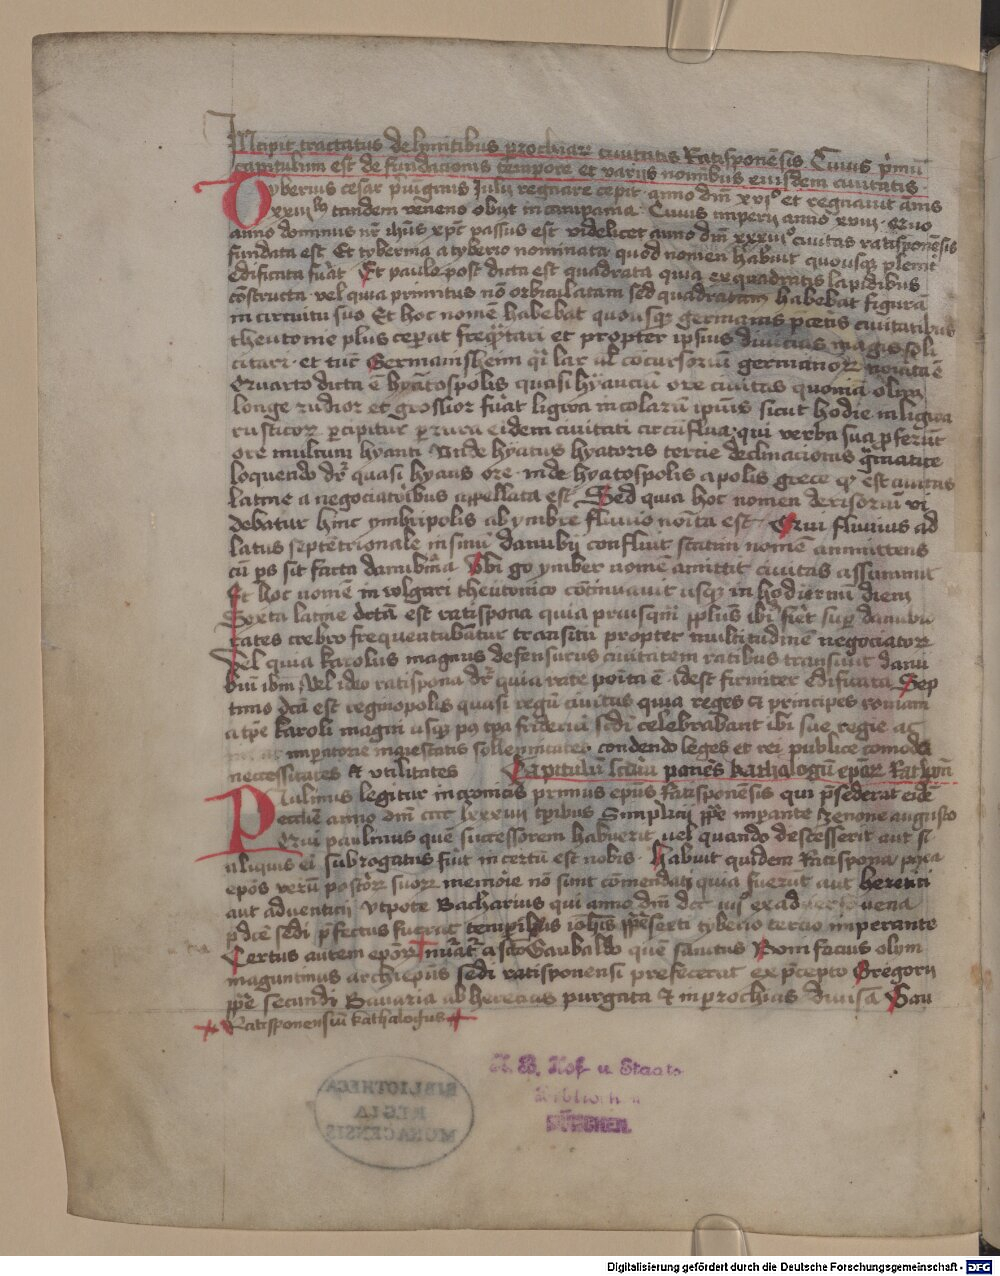 Incipit tractatus de limitibus prochiar civitatis Ratisponēsis Cuius p'mū
capitulum est de fundacionis tempore et varijs nominibus eiusdem civitatis
Tyberius cesar p'vignus Julij regnare cepit anno dnī xvjº et regnavit annis
xxiij tandem veneno obijt in campania Cuius imperij anno xviij
anno dominus nr ihūs xpc passus est videlicet anno dnī xxxiijº civitas ratisponēsis
fundata est Et tyberina a tyberio nominata quod nomen habuit quousq plenīt
edificata fūat Et paulo post dicta est quadrata quia ex quadratis lapidibus
cōstructa vel quia primitus nō orbiculatam sed quadratam habebat figurā
in circuitu suo Et hoc nomē habebat quousq germanis p cetis civitatibus
theutonie plus ceperat freqtari et propter ipsius divicias magis soli
citari et tūc Germansheim qi lar vl cōcursoriū germanor noīata ē
Quarto dicta ē hyatospolis quasi hyanciū ore civitas quoniā olym
longe rudior et grossior fūat ligwa incolarū ipsius sicut hodie in ligwa
rusticor pcipitur p rura eidem civitati circūflua qui verba sua pferūt
ore multum hyanti Unde hyatus hyatoris tercie declinacionis gmatice
loquendo dr quasi hyans ore inde hyatospolis a polis grece q est civitas
latine a negociatoribus appellata est Sed quia hoc nomen derisoriū vi
debatur hinc ymbripolis ab ymbre fluvio noīta est Qui fluvius ad
latus septētrionale in sinū danubij confluit statim nomē ammittens
cū ps sit facta danubina Ubi go ymber nomē amittit civitas assummit
Et hoc nomē in volgari theutonico cōtinuavit usq in hodiernū diem
Sexta latine dcta est ratispona quia priusqm pluiēs ibi fiēt sup danubiū
rates crebro frequentabantur transitu propter multitudinē negociator
Vel quia karolus magnus defensurus civitatem ratibus transivit danu
biū ibm Vel ideo ratispona dr quia rate poita ē idest firmiter edificata Sep
timo dcta est reginopolis quasi regū civitas quia reges et principes romani
a tpe karoli magni usq ad tpa friderici scdi celebrabant ibi sue regie ac
imperatorie maiestatis sollempnitates condendo leges et rei publice comoda
necessitates et utilitates Capitulū scdm ponēs kathalogū epor Ratispon
Paulinus legitur in cronicis primus epus Ratisponēsis qui psederat eidē
ecclie anno dnī ccc lxxxvij tpibus Simplicij ppe inpante zenone augusto
Qui paulinus quē successorem habuerit vel quando descesserit aut si
aliquis ei subrogatus fuit in certū est nobis habuit quidem Ratispona
epos verū postor suor memoie nō sunt cōmendati quia fuerūt aut heretici
aut adventicij Utpote Bacharius qui anno dnī dcc
pdcē sedi pfectus fuerat temporibus iohis ppe sexti tyberio tercio imperante
Certus autem epor + nūatr a sco Gaubaldo quē sanctus Bonifacius olym
maguntinus archiepus sedi ratisponensi prefecerat ex pcepto Gregorij
ppe secundi Bavaria ab hereticis purgata et in prochias divisa Gau
+ Ratisponensiū kathalogus +
BIBLIOTHECA
REGIA
MONACENSIS
K. B. Hof- u. Staats
Bibliothek
MÜNCHEN.
Digitalisierung gefördert durch die Deutsche Forschungsgemeinschaft - DFG